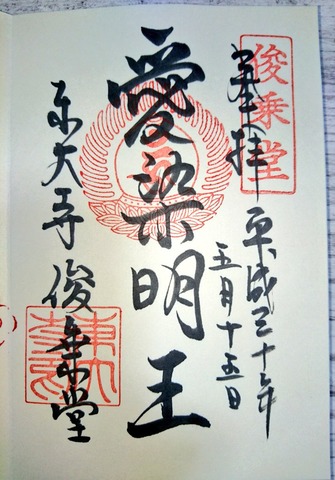 俊乗堂
奉拝
平成三十年
五月十五日
愛染明王
東大寺 俊乗堂
東大寺印